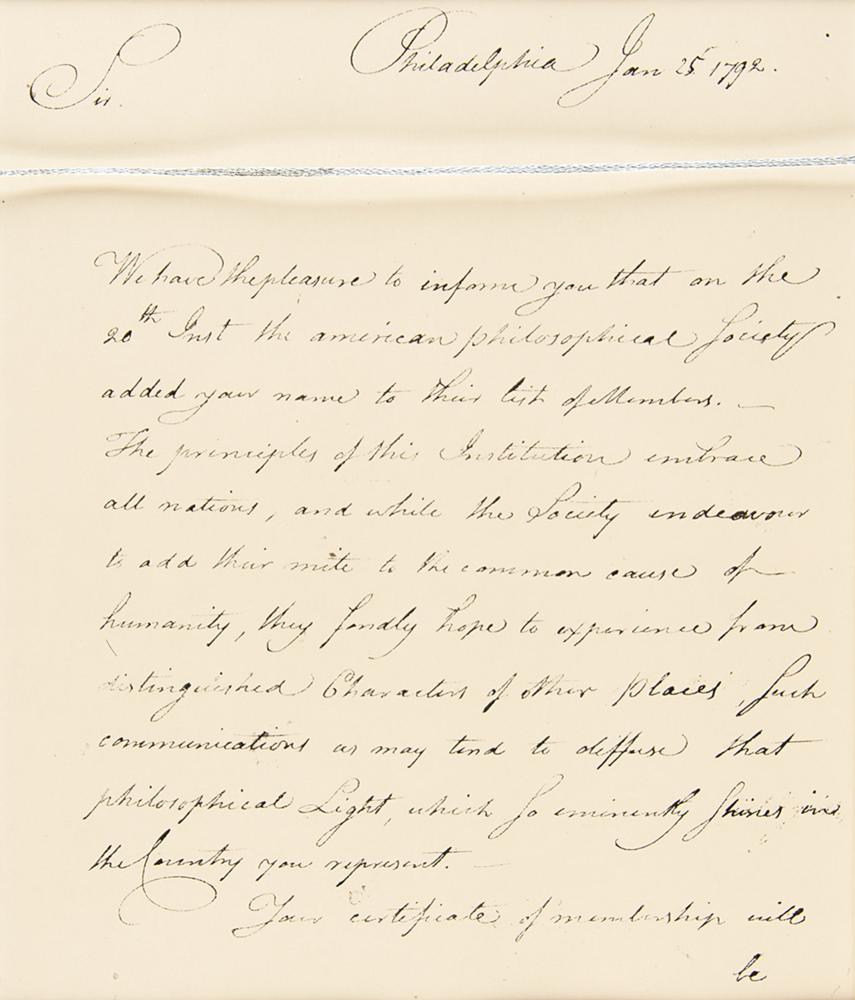 Philadelphia Jan 25. 1792.
Sir.
We have the pleasure to inform you that on the
20th Inst the american philosophical Society
added your name to their list of Members. —
The principles of this Institution embrace
all nations, and while the Society endeavour
to add their mite to the common cause of
humanity, they fondly hope to experience from
distinguished Characters of other places, Such
communications as may tend to diffuse that
philosophical Light, which So eminently Shines in
the Country you represent. —
Your certificate of membership will
be